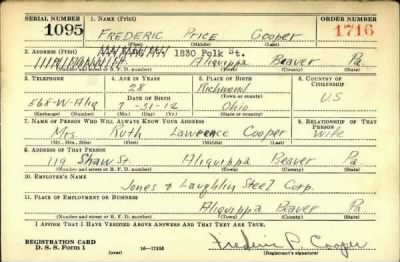 SERIAL NUMBER 1. NAME (Print) ORDER NUMBER
1095 FREDERIC Price Cooper 1716
(First) (Middle) (Last)
2. ADDRESS (Print) 1830 Polk St.
Aliquippa Beaver Pa.
(Number and street or R. F. D. number) (Town) (County) (State)
3. TELEPHONE 4. AGE IN YEARS 5. PLACE OF BIRTH 6. COUNTRY OF CITIZENSHIP
28 Richmond
DATE OF BIRTH (Town or county)
568-W-Aliq 7-31-12 Ohio U.S.
(Exchange) (Number) (Mo.) (Day) (Yr.) (State or country)
7. NAME OF PERSON WHO WILL ALWAYS KNOW YOUR ADDRESS 8. RELATIONSHIP OF THAT PERSON
Mrs. Ruth Lawrence Cooper Wife
(Mr., Mrs., Miss) (First) (Middle) (Last)
9. ADDRESS OF THAT PERSON
119 Shaw St. Aliquippa Beaver Pa.
(Number and street or R. F. D. number) (Town) (County) (State)
10. EMPLOYER'S NAME
Jones & Laughlin Steel Corp.
11. PLACE OF EMPLOYMENT OR BUSINESS
Aliquippa Beaver Pa.
(Number and street or R. F. D. number) (Town) (County) (State)
I AFFIRM THAT I HAVE VERIFIED ABOVE ANSWERS AND THAT THEY ARE TRUE.
REGISTRATION CARD
D. S. S. Form 1 (over) Frederic P. Cooper
(Registrant's signature)